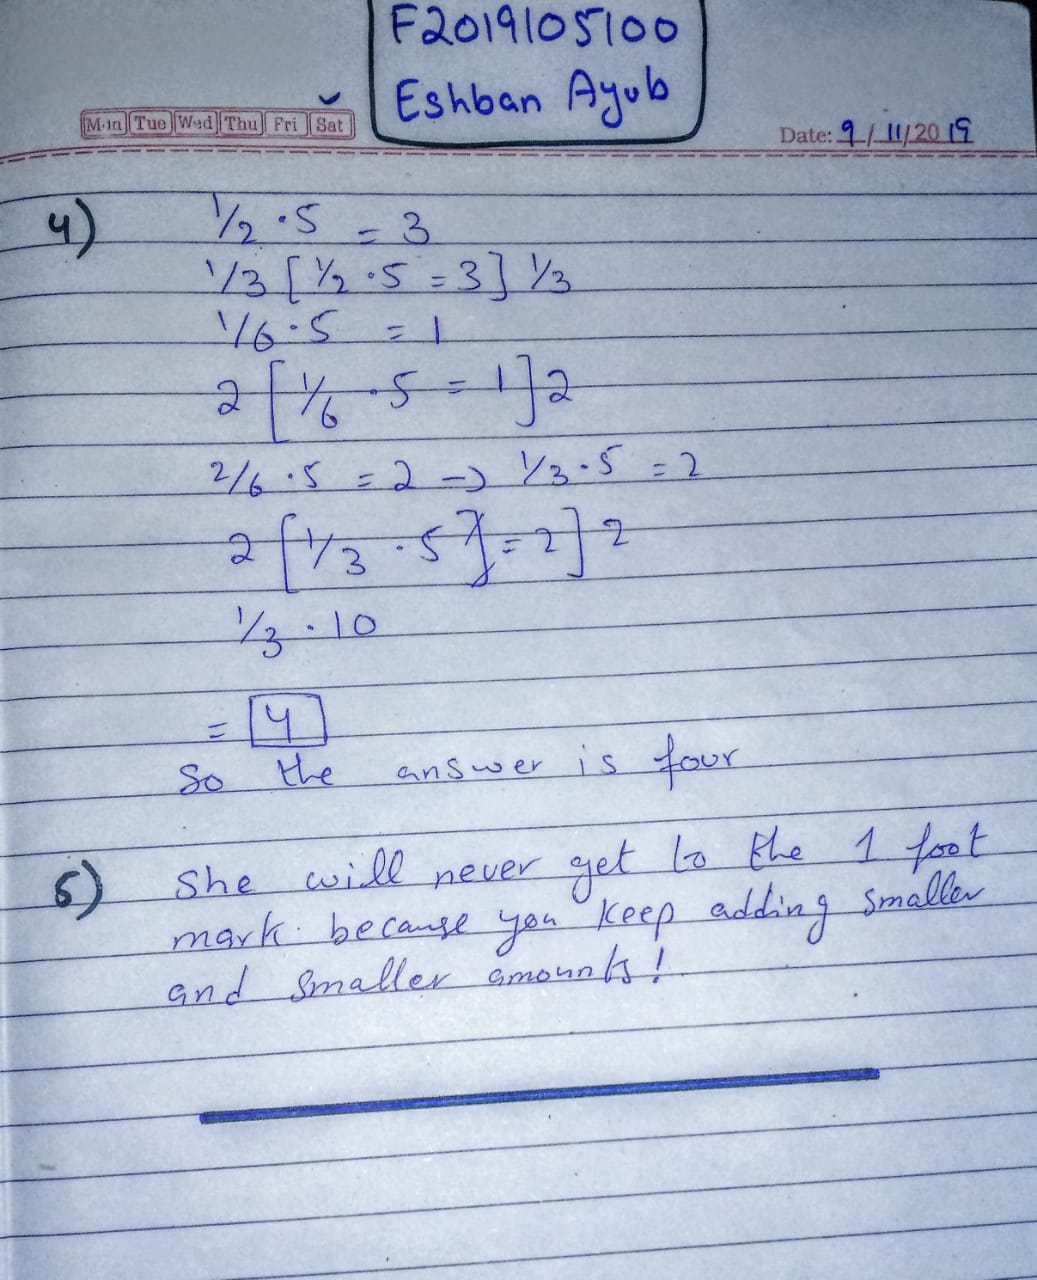 F2019105100
Eshban Ayub
Mon Tue Wed Thu Fri Sat
Date: 9/11/2019
4) 1/2 · 5 = 3
1/3 [ 1/2 · 5 = 3 ] 1/3
1/6 · 5 = 1
2 [ 1/6 · 5 = 1 ] 2
2/6 · 5 = 2 → 1/3 · 5 = 2
2 [ 1/3 · 5 = 2 ] 2
1/3 · 10
= 4
So the answer is four
5) She will never get to the 1 foot
mark because you keep adding smaller
and smaller amounts!